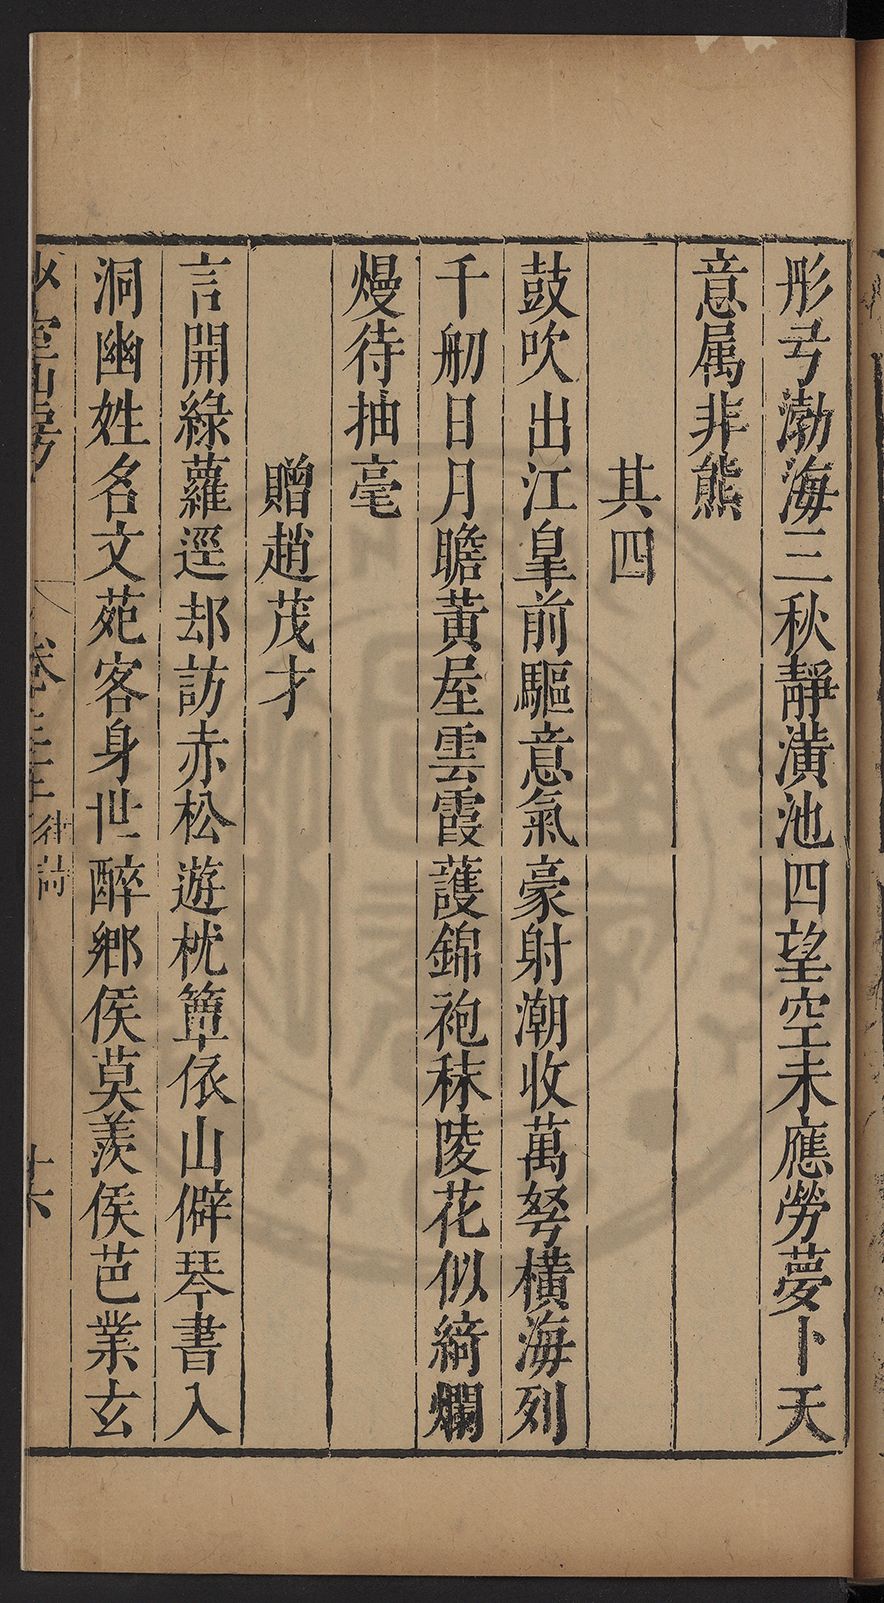 彤弓渤海三秋靜潢池四望空未應勞夢卜天
意属非熊
其四
鼓吹出江皐前驅意氣豪射潮收萬弩横海列
千舠日月瞻黃屋雲霞護錦袍秣陵花似綺爛
熳待抽毫
贈趙茂才
言開綠蘿逕却訪赤松遊枕簟依山僻琴書入
洞幽姓名文苑客身世醉鄉侯莫羨侯芭業玄
少室山房
律詩
十六